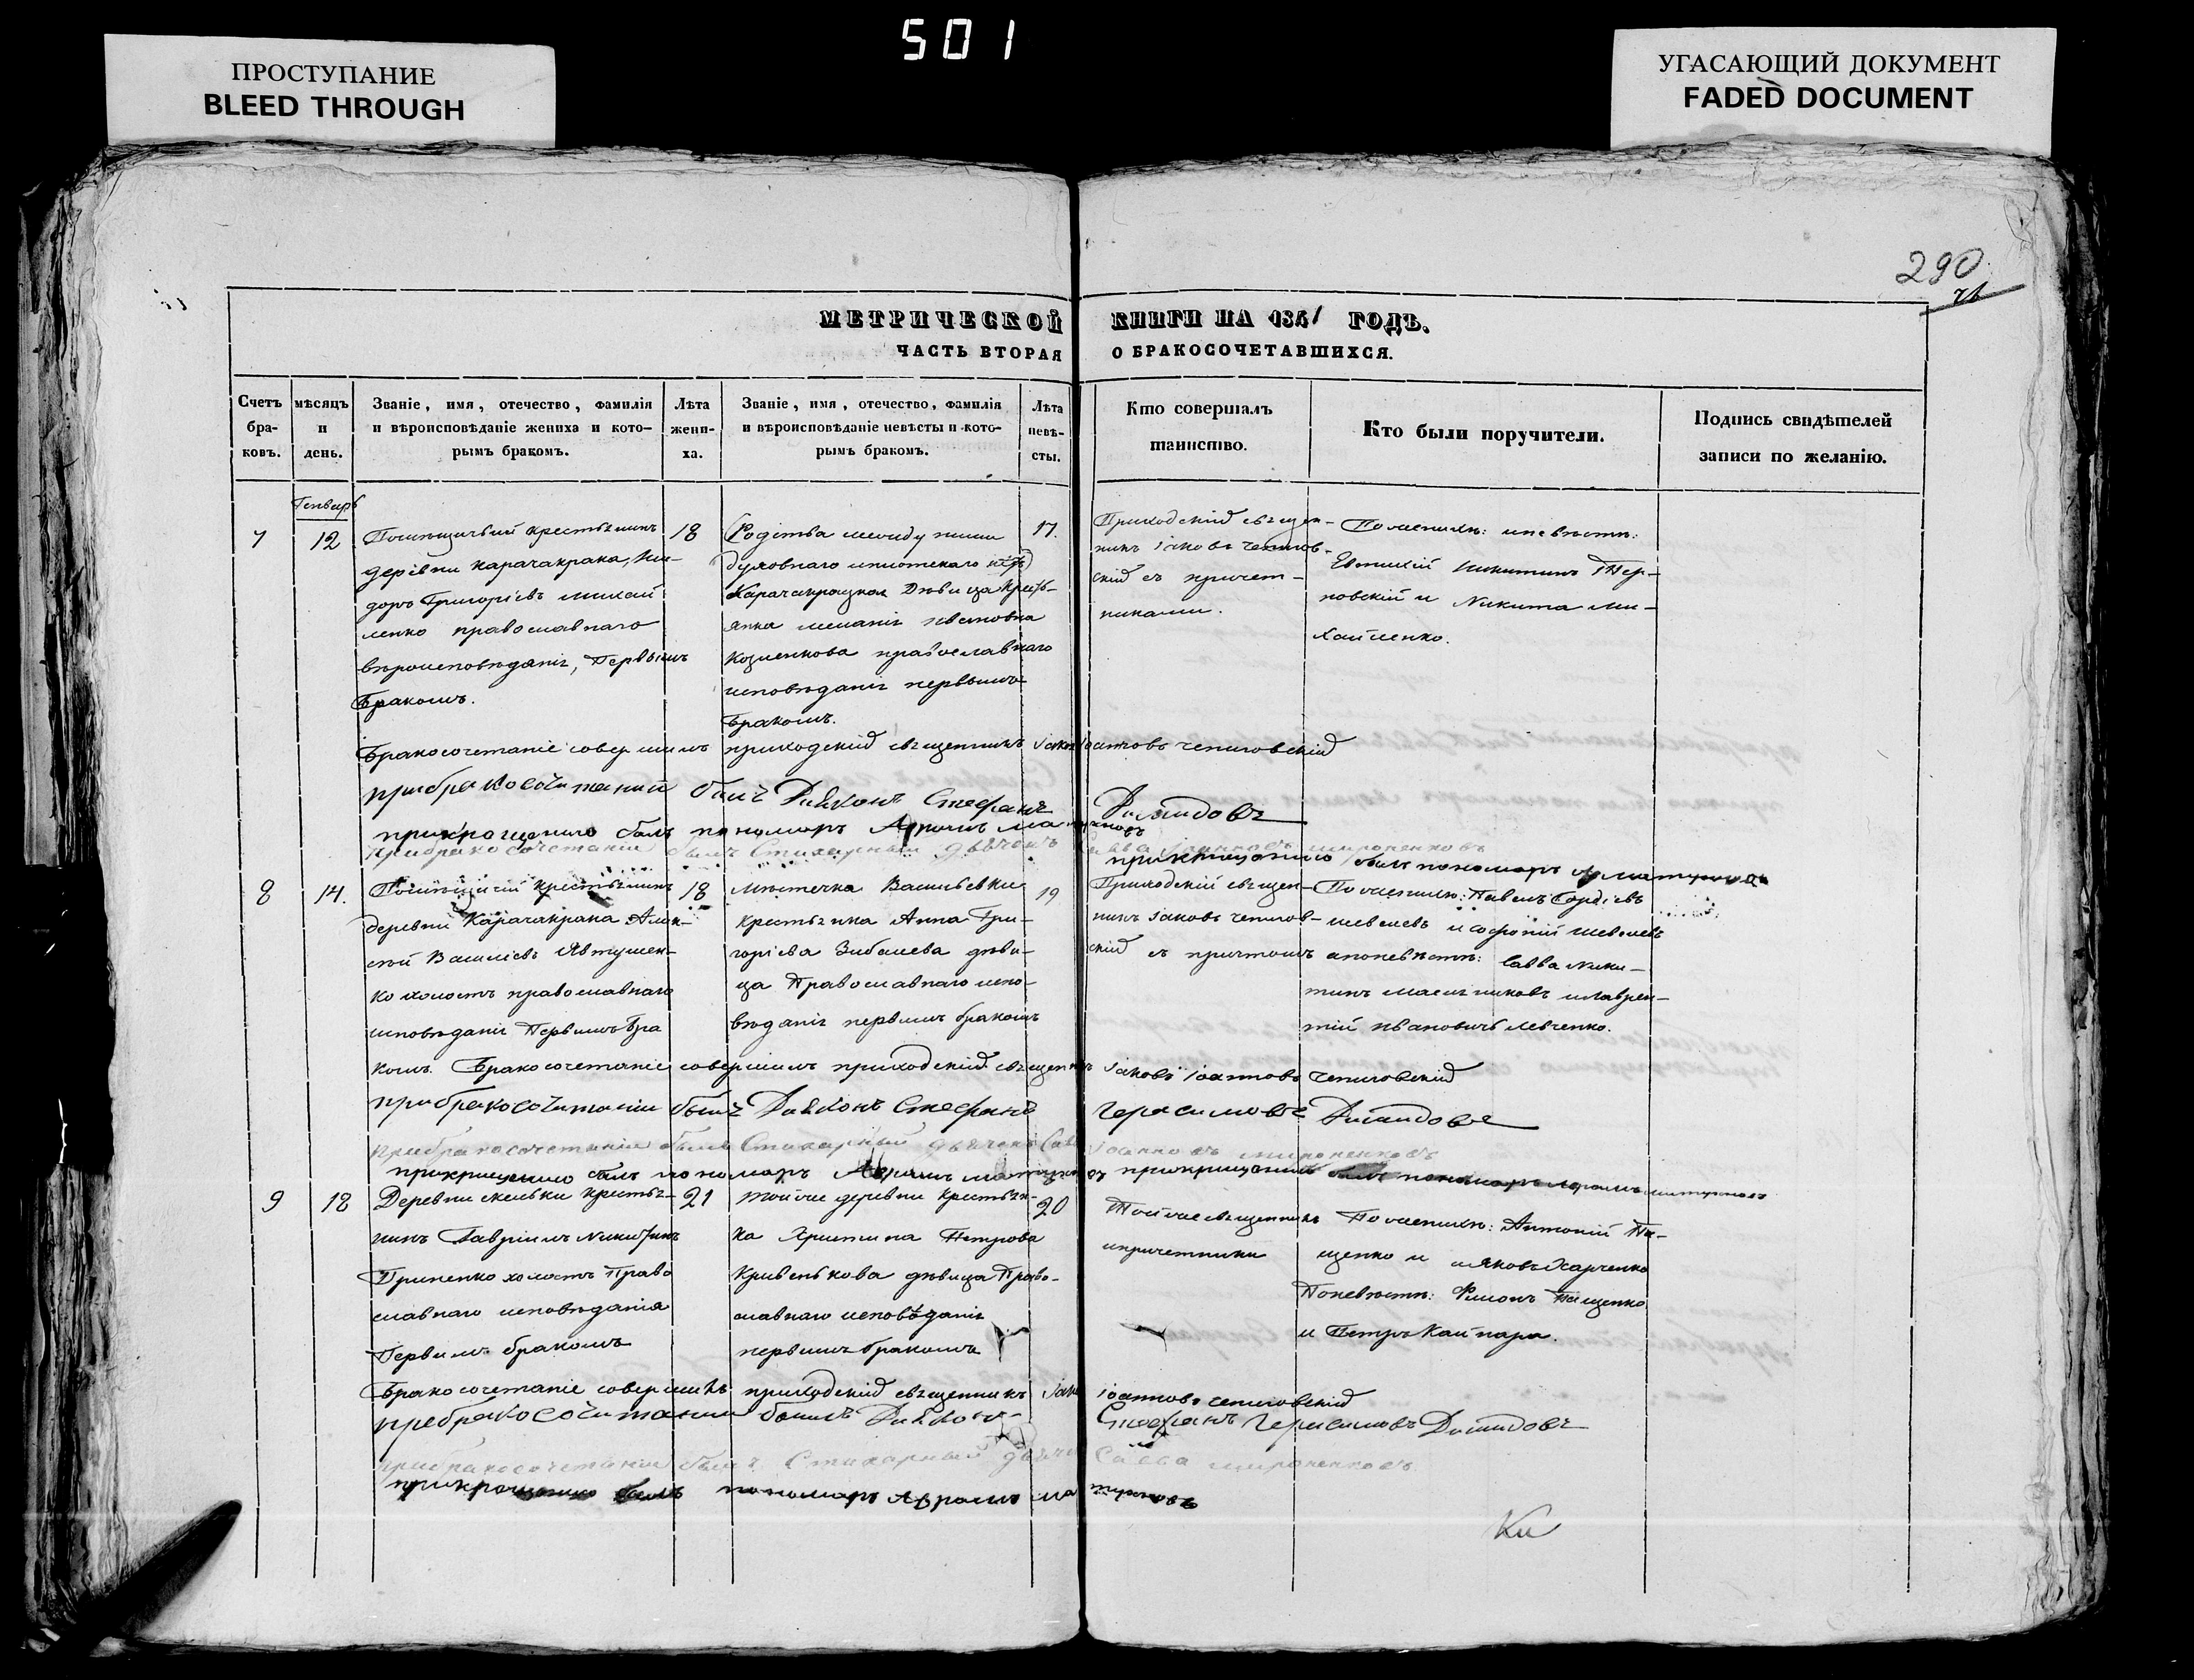 501
ПРОСТУПАНИЕ
BLEED THROUGH
УГАСАЮЩИЙ ДОКУМЕНТ
FADED DOCUMENT
290
МЕТРИЧЕСКОЙ КНИГИ НА 1841 ГОДЪ.
ЧАСТЬ ВТОРАЯ О БРАКОСОЧЕТАВШИХСЯ.
Счетъ бра-ковъ.
мѣсяцъ и день.
Званіе, имя, отечество, фамилія
и вѣроисповѣданіе жениха и кото-
рымъ бракомъ.
Лѣта жени-ха.
Званіе, имя, отечество, фамилія
и вѣроисповѣданіе невѣсты и кото-
рымъ бракомъ.
Лѣта невѣ-сты.
Кто совершалъ
таинство.
Кто были поручители.
Подпись свидѣтелей
записи по желанію.
Генварь
7
12
Помѣщичій крестьянинъ
деревни Карачакрака,
доръ Григоріевъ Михай
ленко православнаго
вѣроисповѣданія, Первымъ
Бракомъ.
18
Родства между ними
духовнаго и плотскаго нѣтъ)
Карачакрацкая Дѣвица Кресть-
янка Меланія Ивановна
Козменкова православнаго
исповѣданія первымъ
Бракомъ.
17.
Приходскій священ-
никъ Іаковъ
скій съ причет-
никами.
По женихѣ: и невѣстѣ:
Евтихій Никитинъ Тер-
новскій и Никита Ми-
хайленко.
Бракосочетаніе совершилъ приходскій священникъ Іаковъ Іоанновъ
при бракосочитаний былъ Дияконъ Стефанъ
былъ пономарь
при бракосочетаніи былъ Стихарный дьячекъ Савва
былъ пономарь
8
14.
Помѣщичій крестьянинъ
деревни Карачакрака Алек-
сѣй Василіевъ Явтушен-
ко холостъ православнаго
исповѣданія Первымъ Бра
комъ.
18
Мѣстечка Васильевки
крестьянка Анна Гри-
горіева Зибалева дѣви-
ца Православнаго испо-
вѣданія первымъ бракомъ
19
Приходскій священ-
никъ Іаковъ
скій съ причтомъ
По женихѣ: Павелъ Гордіевъ
Шевелевъ и Софроній Шевелевъ
а по невѣстѣ: Савва Ники-
тинъ Масличковъ и Лаврен-
тій Ивановичъ Левченко.
Бракосочетаніе совершилъ приходскій священникъ Іаковъ Іоанновъ
при бракосочитании былъ Дияконъ Стефанъ Герасимовъ
при бракосочетаніи былъ Стихарный дьячекъ Савва Іоанновъ
былъ пономарь
9
18
Деревни Скельки крестья-
нинъ Гавріилъ Никитинъ
Гриненко холостъ Право
славнаго исповѣданія
Первымъ бракомъ
21
Той же деревни крестьян-
ка Христина Петрова
Кривенькова дѣвица Право-
славнаго исповѣданія
первымъ бракомъ
20
Той же священникъ
и причетники
По женихѣ: Антоній Па-
щенко и Яковъ Харченко
По невѣстѣ: Филонъ Пащенко
и Петръ Кайпара.
Бракосочетаніе совершилъ приходскій священникъ Іаковъ Іоанновъ
при бракосочитании былъ Диякон Стефанъ Герасимовъ
при бракосочетаніи былъ Стихарный дьячекъ Савва
былъ пономарь